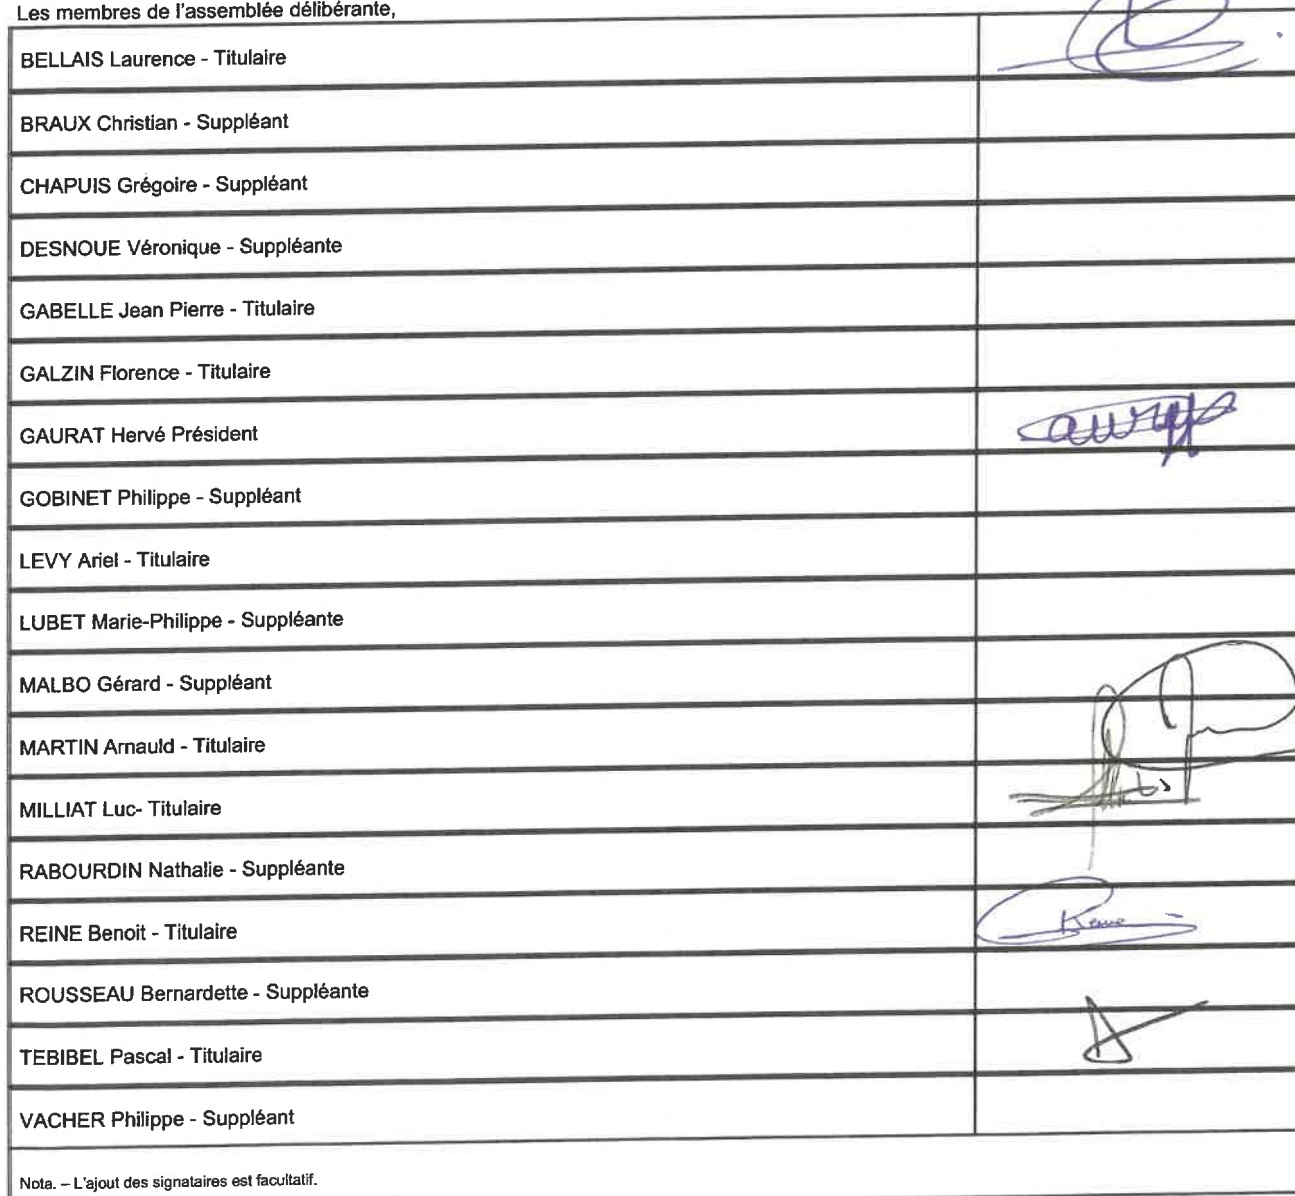 Les membres de l'assemblée délibérante,
BELLAIS Laurence - Titulaire
BRAUX Christian - Suppléant
CHAPUIS Grégoire - Suppléant
DESNOUE Véronique - Suppléante
GABELLE Jean Pierre - Titulaire
GALZIN Florence - Titulaire
GAURAT Hervé Président
GOBINET Philippe - Suppléant
LEVY Ariel - Titulaire
LUBET Marie-Philippe - Suppléante
MALBO Gérard - Suppléant
MARTIN Arnauld - Titulaire
MILLIAT Luc- Titulaire
RABOURDIN Nathalie - Suppléante
REINE Benoit - Titulaire
ROUSSEAU Bernardette - Suppléante
TEBIBEL Pascal - Titulaire
VACHER Philippe - Suppléant
Nota. – L'ajout des signataires est facultatif.